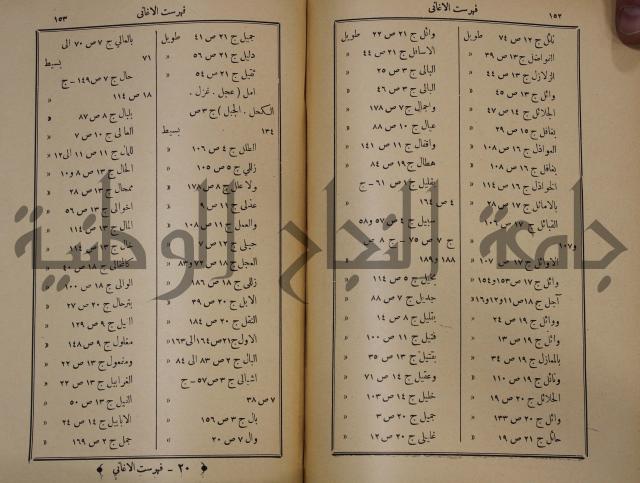 ١٥٢
فهرست الاغاني
نائل ج ١٢ ص ٧٤ طويل
النواضل ج ١٣ ص ٣٩ «
الزلازل ج ١٣ ص ٤٤ «
وائل ج ١٣ ص ٤٥ «
الجلائل ج ١٤ ص ٤٧ «
بغافل ج ١٥ ص ٢٩ «
العواذل ج ١٦ ص ١٠٨ «
بغافل ج ١٦ ص ١٠٨ «
الخواذل ج ١٦ ص ١١٤ «
بالاماثل ج ١٧ ص ٢٨ «
القبائل ج ١٧ ص ١٠٦
و١٠٧ «
الاوائل ج ١٧ ص ١٠٧ «
وائل ج ١٧ ص ١٥٣ و١٥٤ «
آجل ج ١٨ ص ١١ و١٢ و١٦ «
ووائل ج ١٩ ص ٢٤ «
وائل ج ١٩ ص ١٣ «
بالمنازل ج ١٩ ص ٣٤ «
ونائل ج ١٩ ص ١١٠ «
الحلائل ج ٢٠ ص ١٩ «
وائل ج ٢٠ ص ١٣٣ «
حائل ج ٢١ ص ١٩ «
وائل ج ٢١ ص ٢٢ طويل
الاسافل ج ٢١ ص ٤٤ «
البالى ج ٣ ص ٢٥ «
البالى ج ٣ ص ٤٦ «
واجمال ج ٧ ص ١٧٨ «
عيال ج ١٠ ص ٨٨ «
واقفال ج ١١ ص ١٤١ «
هطال ج ١٩ ص ٨٤ «
بقليل ج ١ ص ٦١ - ج
٤ ص ١٦٤ «
سبيل ج ٤ ص ٥٧ و٥٨
ج ٧ ص ٧٥ - ج ٨ ص
١٨٨ و١٨٩ «
بخيل ج ٥ ص ١١٤ «
جديل ج ٧ ص ٨٨ «
بقليل ج ٨ ص ١٤ «
فتيل ج ١١ ص ١٠٠ «
بقتيل ج ١٣ ص ٣٥ «
وعقيل ج ١٤ ص ٧١ «
خليل ج ١٤ ص ١٠٣ «
جميل ج ٢٠ ص ٣ «
نخليلى ج ٢٠ ص ١٢ «
فهرست الاغاني
١٥٣
جميل ج ٢١ ص ٤١ طويل
دليل ج ٢١ ص ٥٦ «
ثقيل ج ٢١ ص ٥٤ «
امل (عجل . غزل .
الكحل . الجبل) ج ٣ ص
١٣٤ بسيط
الطلل ج ٤ ص ١٠٦ «
زللي ج ٥ ص ١٠٥ «
ولا علل ج ٨ ص ١٧٨ «
عذلى ج ١١ ص ٩ «
والعمل ج ١١ ص ١٠٨ «
حبلى ج ١٢ ص ٧ «
العجل ج ١٨ ص ٧٢ و٨٣ «
زللي ج ١٨ ص ١٨٦ «
الابل ج ٢٠ ص ٣٩ «
الثقل ج ٢٠ ص ١٨٤ «
الاول ج ٢١ ص ١٦٤ الى ١٦٣ «
البال ج ٢ ص ٨٣ الى ٨٤ «
اشبالى ج ٣ ص ٥٧ - ج
٧ ص ٣٨ «
بال ج ٣ ص ١٥٦ «
وال ٧ ص ٢٠ «
بالعالي ج ٧ ص ٧٠ الى
٧١ بسيط
حال ج ٧ ص ١٤٩ - ج
١٨ ص ١١٤ «
بلبال ج ٨ ص ٨٧ «
العالى ج ١٠ ص ٧ «
للمال ج ١١ ص ١١ الى ١٢ «
الحال ج ١٣ ص ٨ و١٠ «
ممحال ج ١٣ ص ٢٨ «
اخوالى ج ١٣ ص ٥٦ «
المال ج ١٣ ص ١١٤ «
خال ج ١٣ ص ١١٤ «
كالخالي ج ١٨ ص ٤٠ «
الوالى ج ١٨ ص ١٠٠ «
بترحال ج ٢٠ ص ٢٧ «
الليل ج ٩ ص ١٢٩ «
مغلول ج ٩ ص ١٤٨ «
ومفعول ج ١٣ ص ٢٢ «
الغرابيل ج ١٣ ص ٢٢ «
النيل ج ١٣ ص ٥٠ «
الابابيل ج ١٤ ص ٢٤ «
جمل ج ٢ ص ١٦٩ «
٢٠ - فهرست الاغاني
جامعة النجاح الوطنية